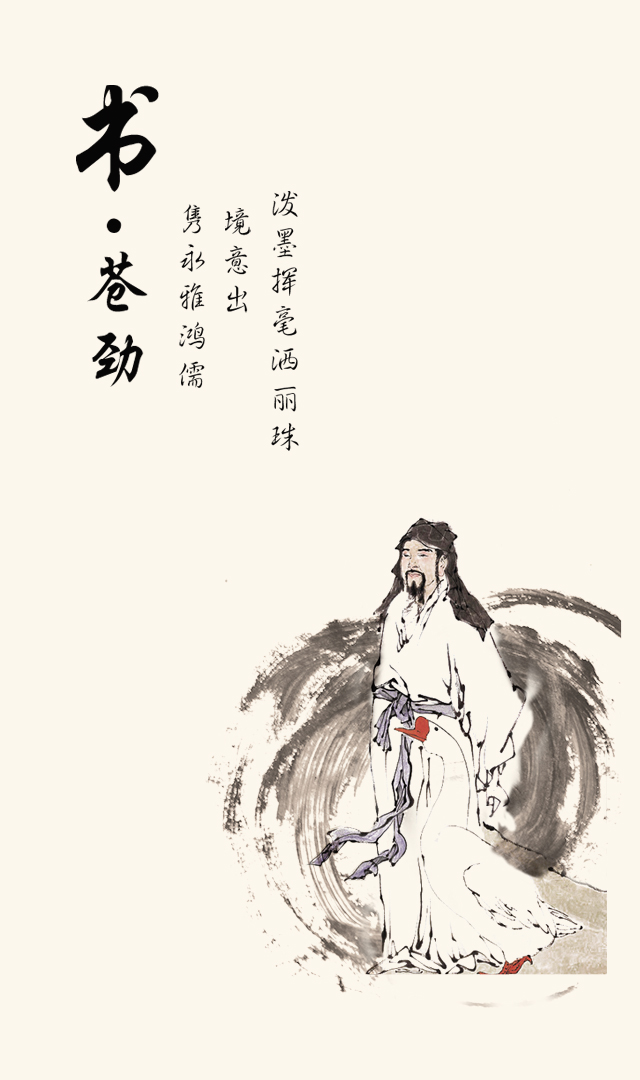 书·苍劲
泼墨挥毫洒丽珠
境意出
隽永雅鸿儒